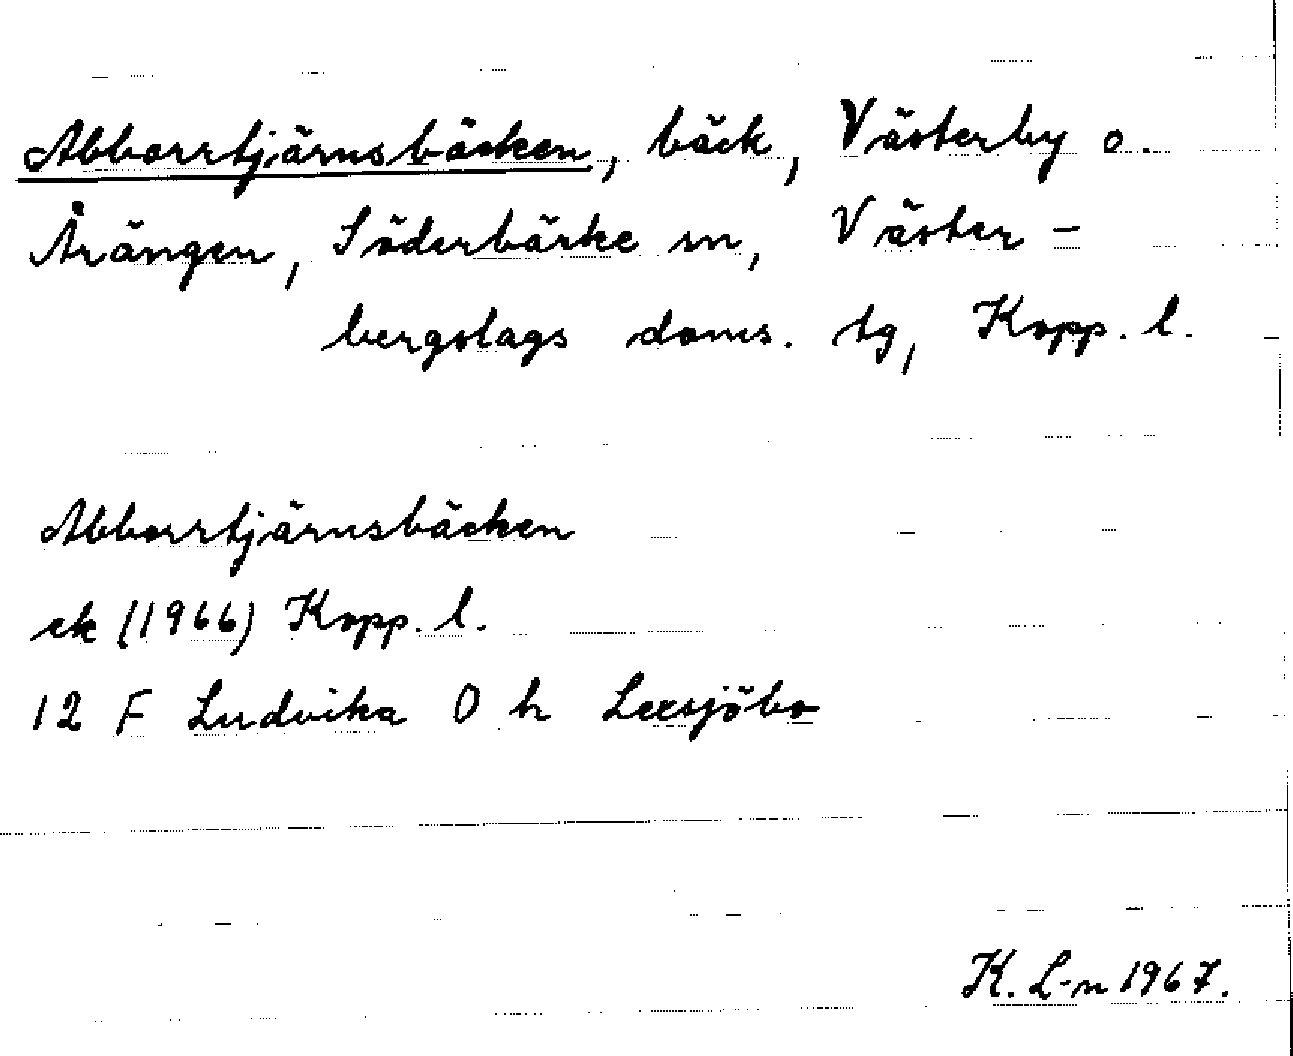 Abborrtjärnsbäcken, bäck, Västerby o.
Årängen, Söderbärke sn, Väster-
bergslags doms. tg, Kopp. l.
Abborrtjärnsbäcken
ek (1966) Kopp. l.
12 F Ludvika 0 h Leresjöbo
K. L-n 1967.